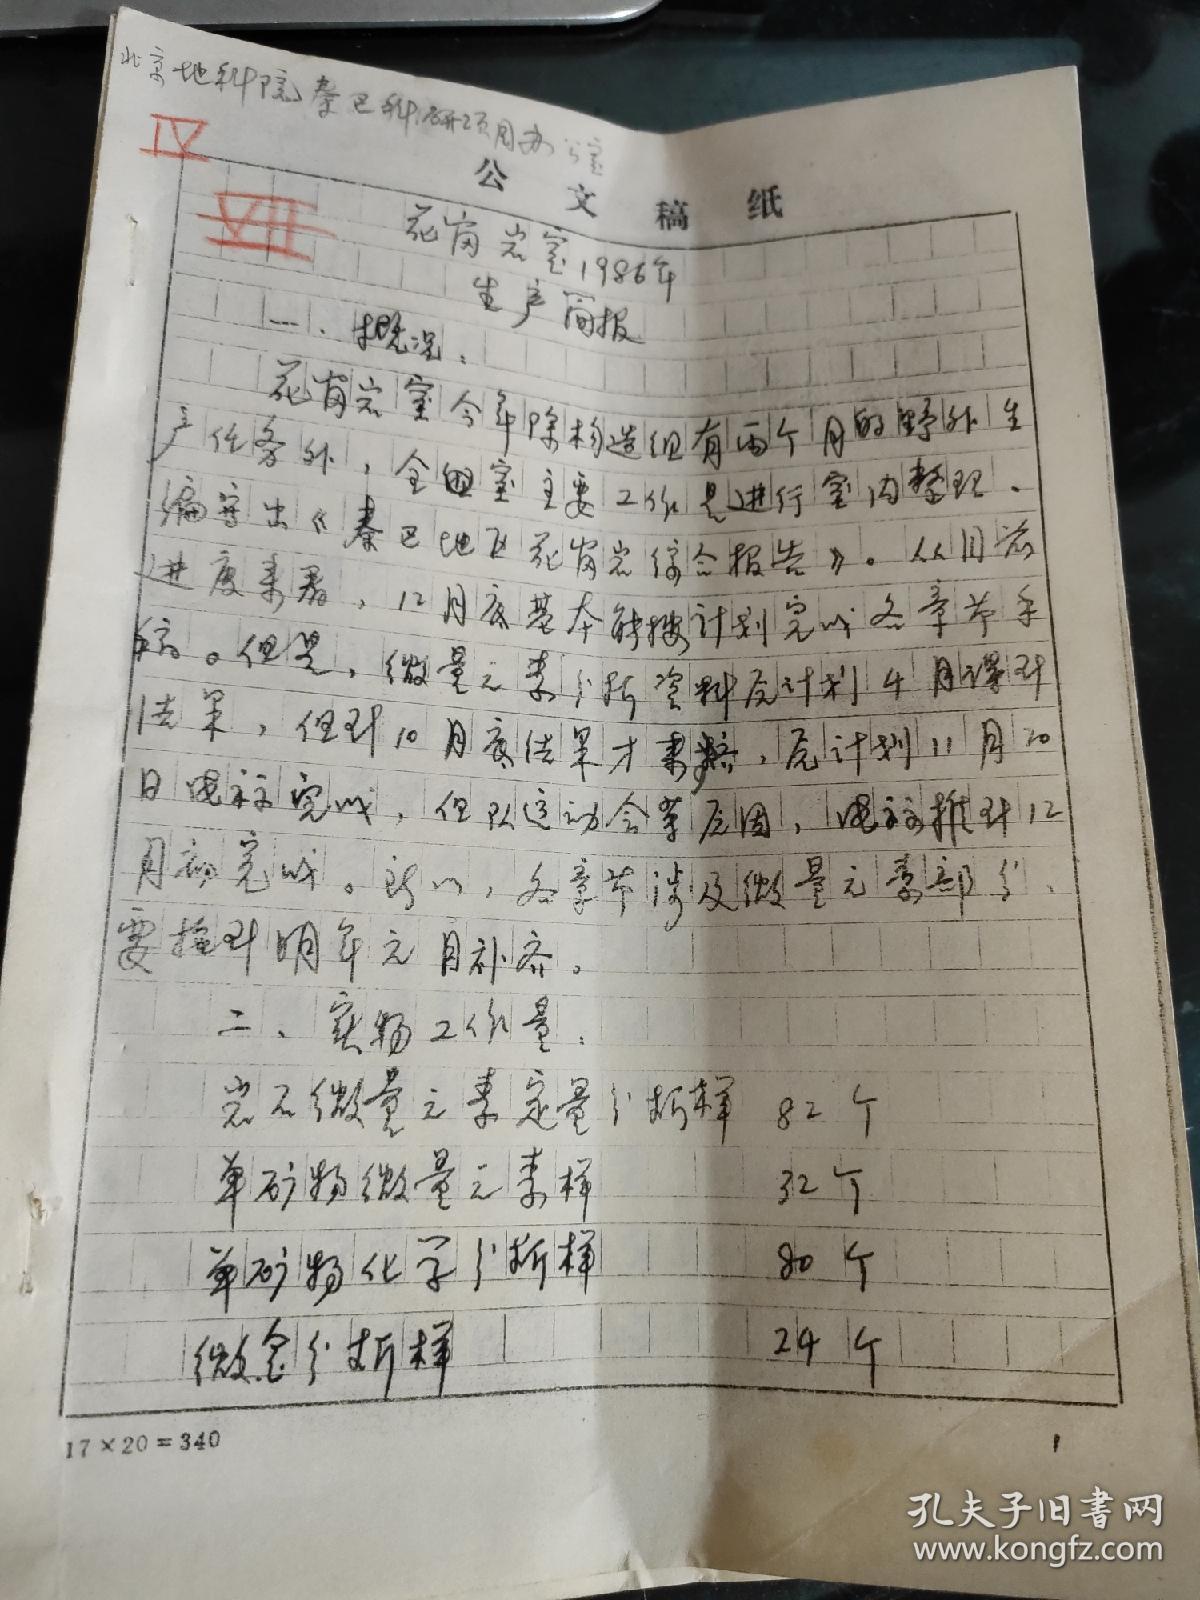 北京地科院秦巴科研项目办公室
IV
VII
公文稿纸
花岗岩室1986年
生产简报
一、概况.
花岗岩室今年除构造组有两个月的野外生
产任务外，全室主要工作是进行室内整理、
编写出《秦巴地区花岗岩综合报告》。从目前
进度来看，12月底基本能按计划完成各章节手
稿。但是，微量元素分析资料原计划4月课到
结果，但到10月底结果才来，原计划11月20
日完成，但队运动会等原因，推到12
月初完成。所以，各章节涉及微量元素部分、
要推到明年元月补齐。
二、实物工作量.
岩石微量元素定量分析样 82个
单矿物微量元素样 32个
单矿物化学分析样 80个
微金分析样 24个
17×20=340
1
孔夫子旧书网
www.kongfz.com